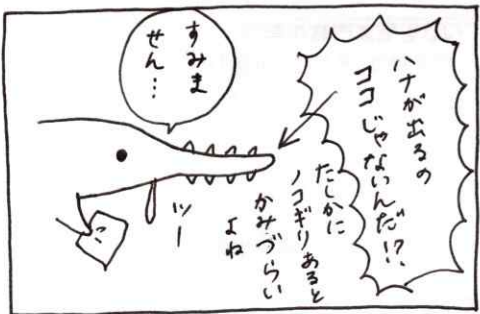 ハナが出るの
ココじゃないんだ!?
たしかに
ノコギリあると
かみづらい
よね
すみま
せん…
ツー